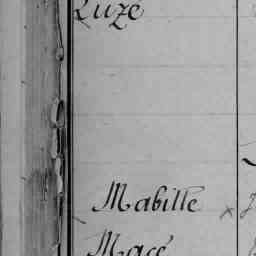 Luzé
Mabille
Macé